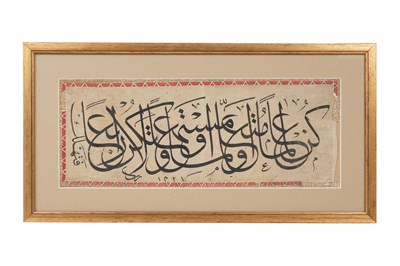 كن عالما او متعلما او مستمعا ولا تكن رابعا
١٣٢١